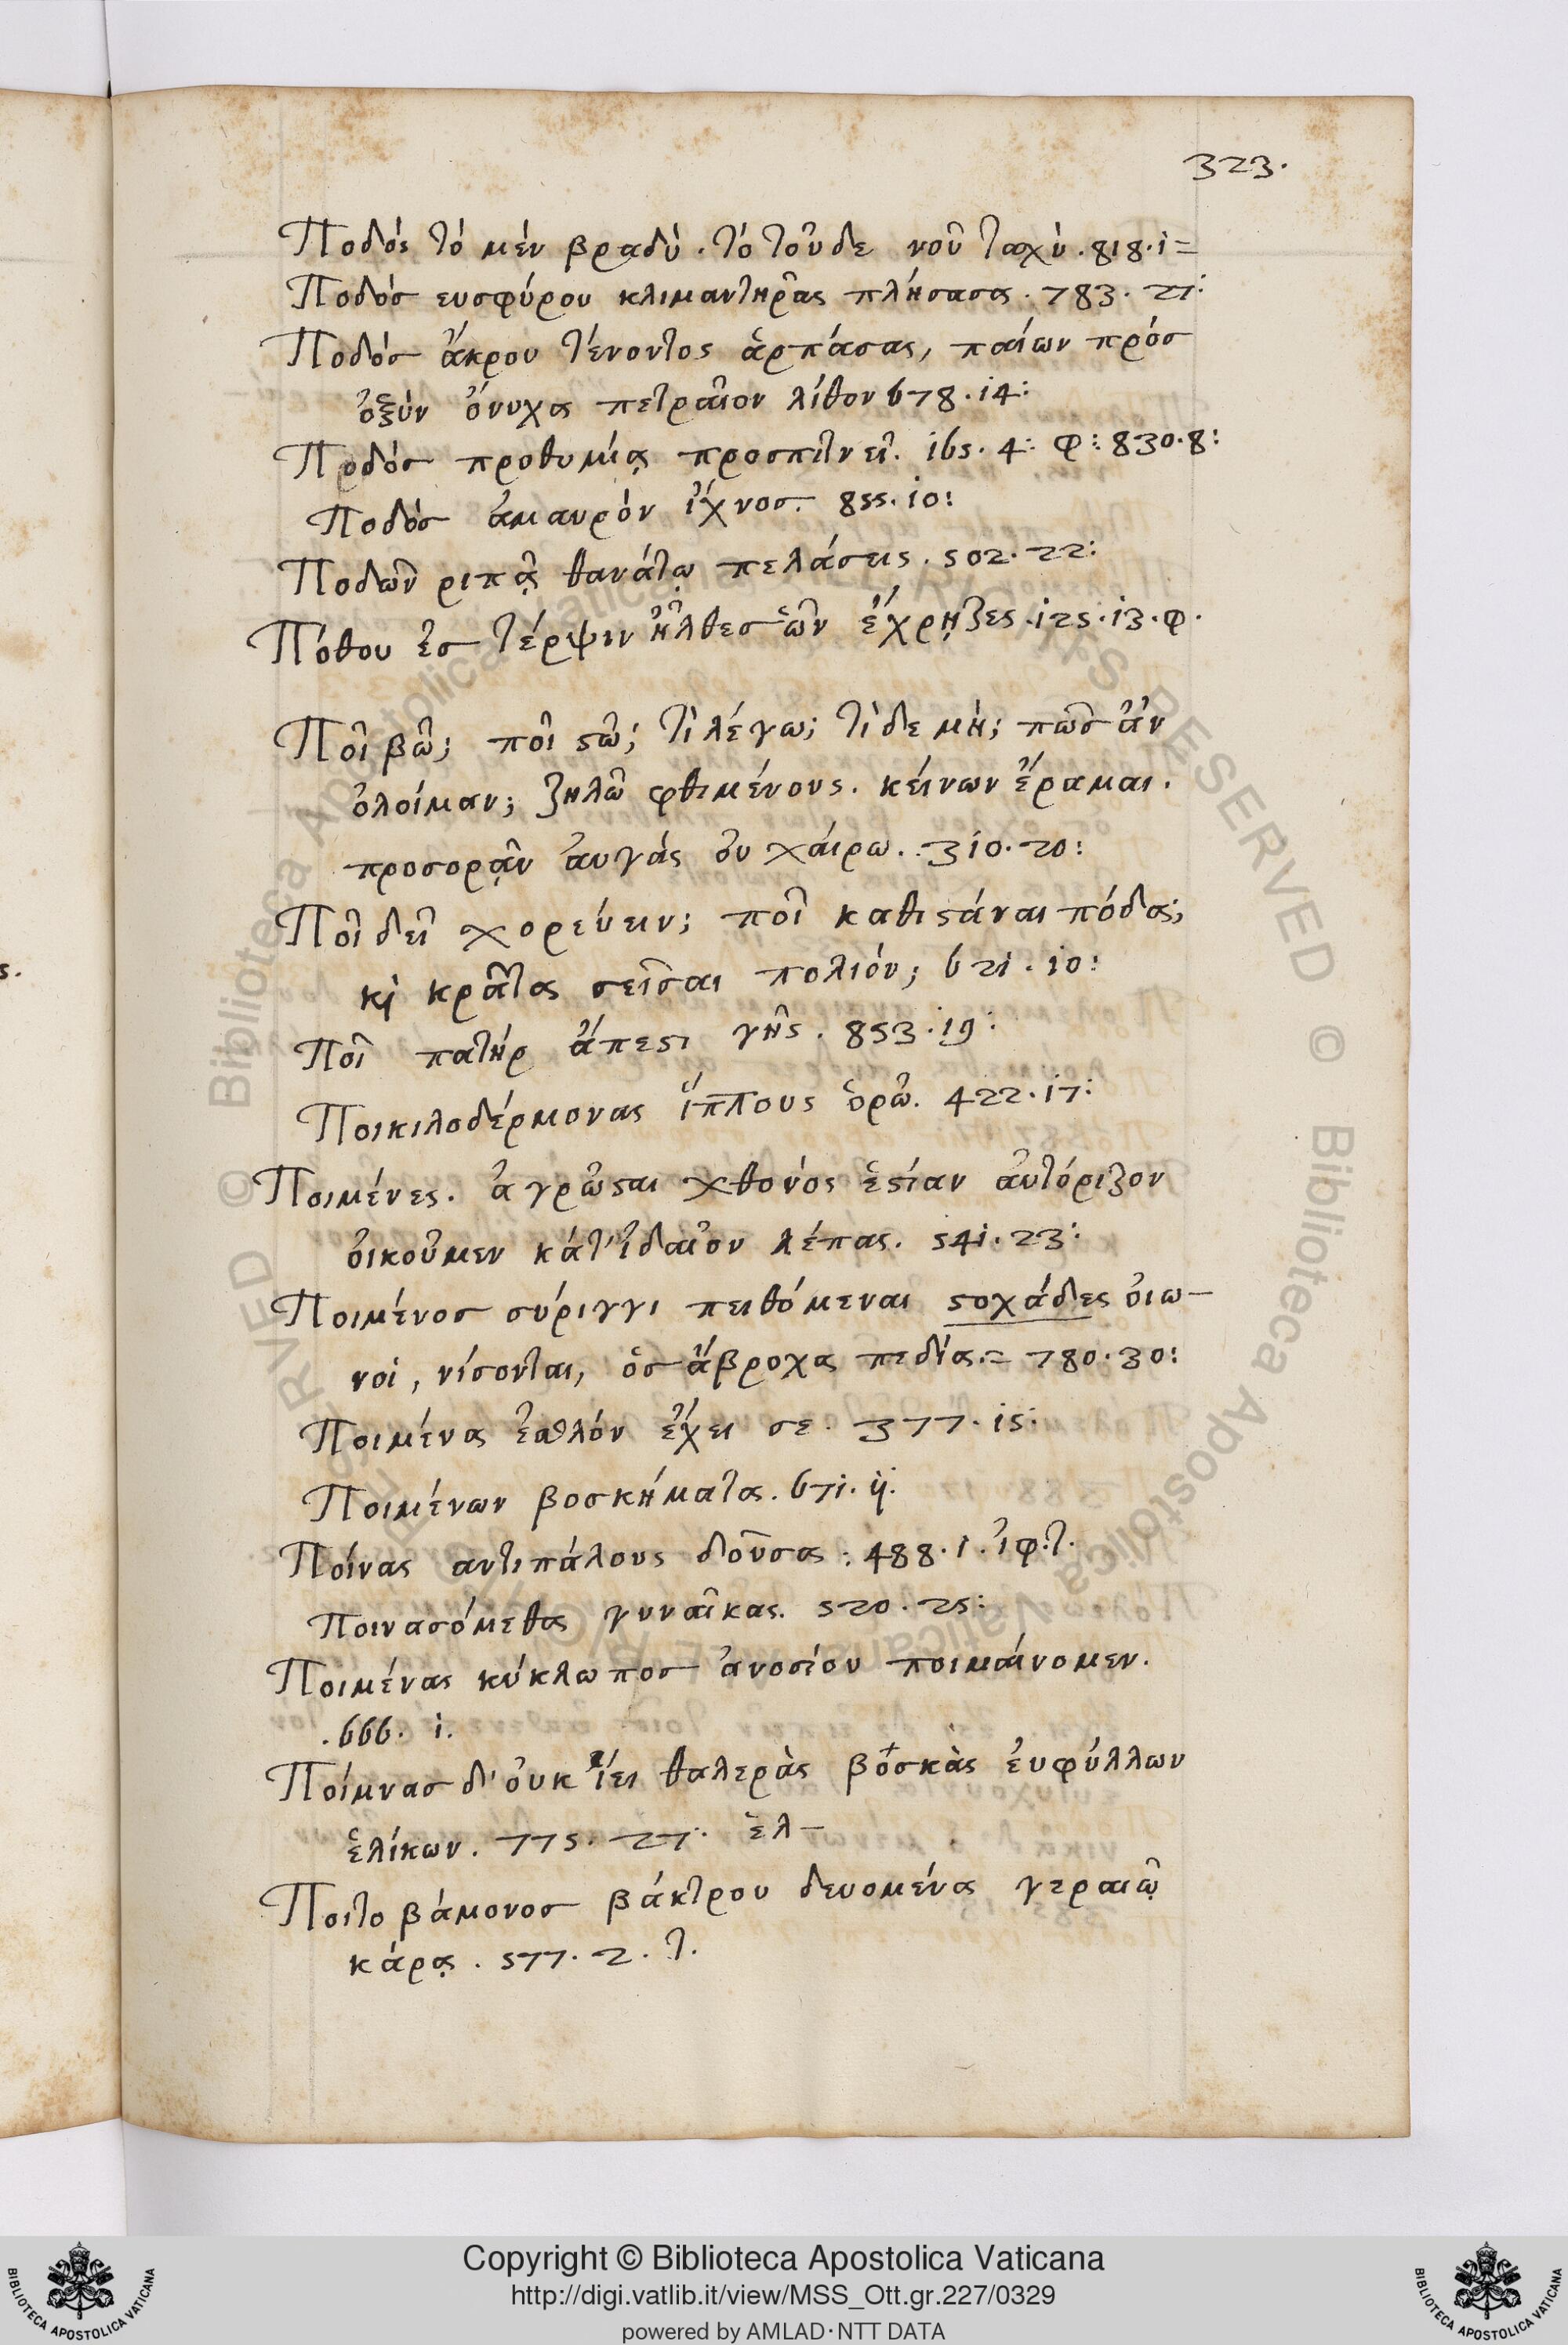 323.
Ποδός τό μέν βραδύ. τό τοῦ δε νοῦ ταχύ. 818. i =
Ποδόσ ευσφύρου κλιμαντηρ̃ας πλήσασα. 783. 27:
Ποδόσ ἄκρου τένοντος ἁρπάσας, παίων πρόσ
ὀξὺν ὄνυχα πετραῖον λίθον 678. i4:
Ποδόσ προθυμίᾳ προσπιτνεῖ. i65. 4: φ: 830. 8:
Ποδόσ ἀμαυρὸν ἴχνοσ. 855. io:
Ποδῶν ριπᾷ θανάτῳ πελάσεις. 502. 22:
Πόθου ἐσ τέρψιν ἦλθεσ ὧν ἔχρηζες. i25. i3. φ.
Ποῖ βῶ; ποῖ ςῶ; τὶ λέγω; τὶ δε μὴ; πῶσ ἂν
ὀλοίμαν; ζηλῶ φθιμένους. κείνων ἔραμαι.
προσορᾷν ἀυγάς ὀυ χάιρω. 3i0. 20:
Ποῖ δεῖ χορεύειν; ποῖ καθιςάναι πόδα;
κὶ κρᾶτα σεῖσαι πολιόν; 62i. i0:
Ποῖ πατήρ ἄπεςι γῆς. 853. i9:
Ποικιλοδέρμονας ἵππους ὁρῶ. 422. i7:
Ποιμένες. ἀγρῶςαι χθονός ἑςίαν ἀυτόριζον
ὀικοῦμεν κάτ' ἰδαῖον λέπας. 54i. 23:
Ποιμένοσ σύριγγι πειθόμεναι ςοχάδες ὀιω-
νοὶ, νίσονται, ὁσ ἄβροχα πεδία. = 780. 30:
Ποιμένα ἐσθλόν ἔχει σε. 377. i5:
Ποιμένων βοσκήματα. 67i. ij.
Ποίνας αντιπάλους δοῦσα: 488. i. ἰφ. τ.
Ποινασόμεθα γυναῖκας. 520. 25:
Ποιμένας κύκλωποσ ἀνοσίου ποιμαίνομεν.
.666. i.
Ποίμνασ δ' ὀυκ ἵει θαλερὰς βόσκὰς ἐυφύλλων
ἑλίκων. 775. 27: ἑλ-
Ποιτο βάμονοσ βάκτρου δευομένα γεραιῷ
κάρᾳ. 577. 2. τ.
s.
Copyright © Biblioteca Apostolica Vaticana
http://digi.vatlib.it/view/MSS_Ott.gr.227/0329
powered by AMLAD·NTT DATA